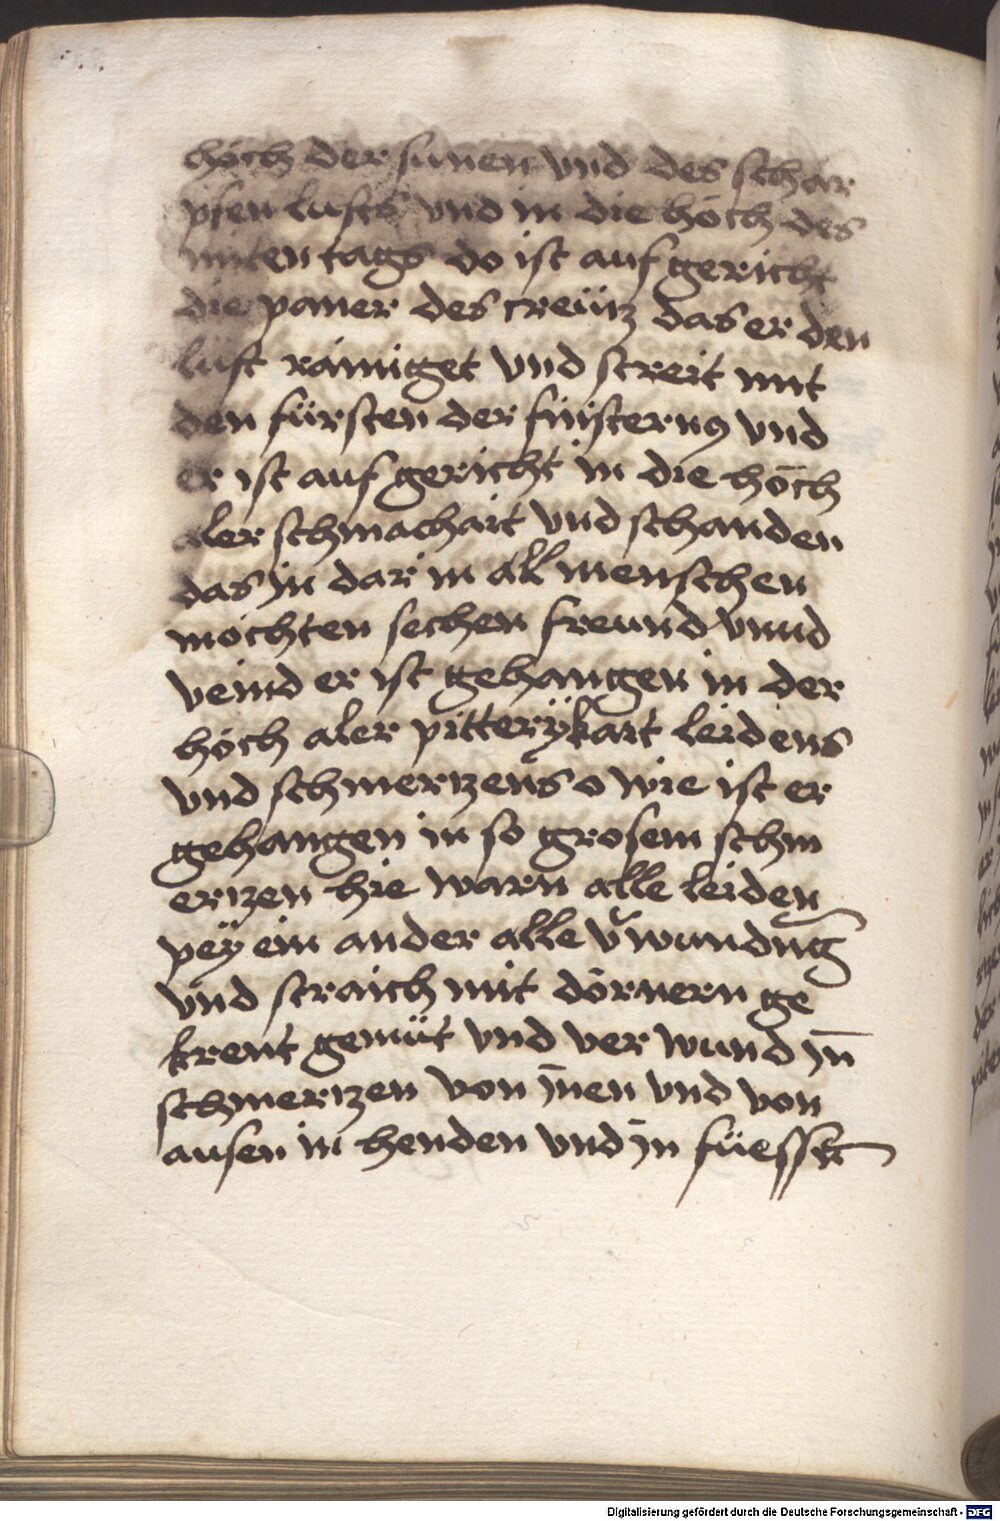 höch der sunen vnd des schar
pfen lufts vnd in die höch des
miten tags do ist auf gericht
die paner des creütz das er den
luft rainiget vnd streit mit
den fürsten der finsternus vnd
er ist auf gericht in die höch
aler schmachait vnd schanden
das in dar in all menschen
möchten sechen freund vnnd
veind er ist gehangen in der
höch aler pitterÿkait leidens
vnd schmertzens o wie ist er
gehangen in so grosem schm
ertzen hie warn alle leiden
peÿ ein ander alle v̄wundnḡ
vnd straich mit dörnern ge
krent gemüt vnd ver wund jn̄
schmertzen von jnen vnd von
ausen in henden vnd in
Digitalisierung gefördert durch die Deutsche Forschungsgemeinschaft - DFG